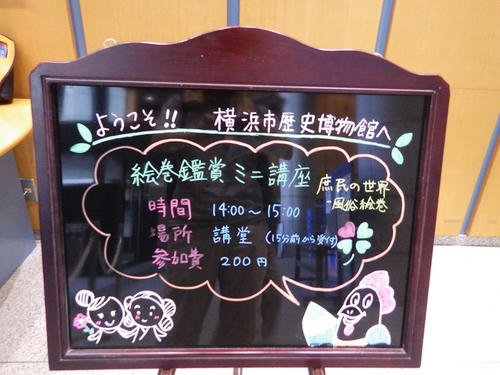 ようこそ!! 横浜市歴史博物館へ
絵巻鑑賞ミニ講座
庶民の世界
-風俗絵巻
時間 14:00~15:00
場所 講堂 (15分前から受付)
参加費 200円